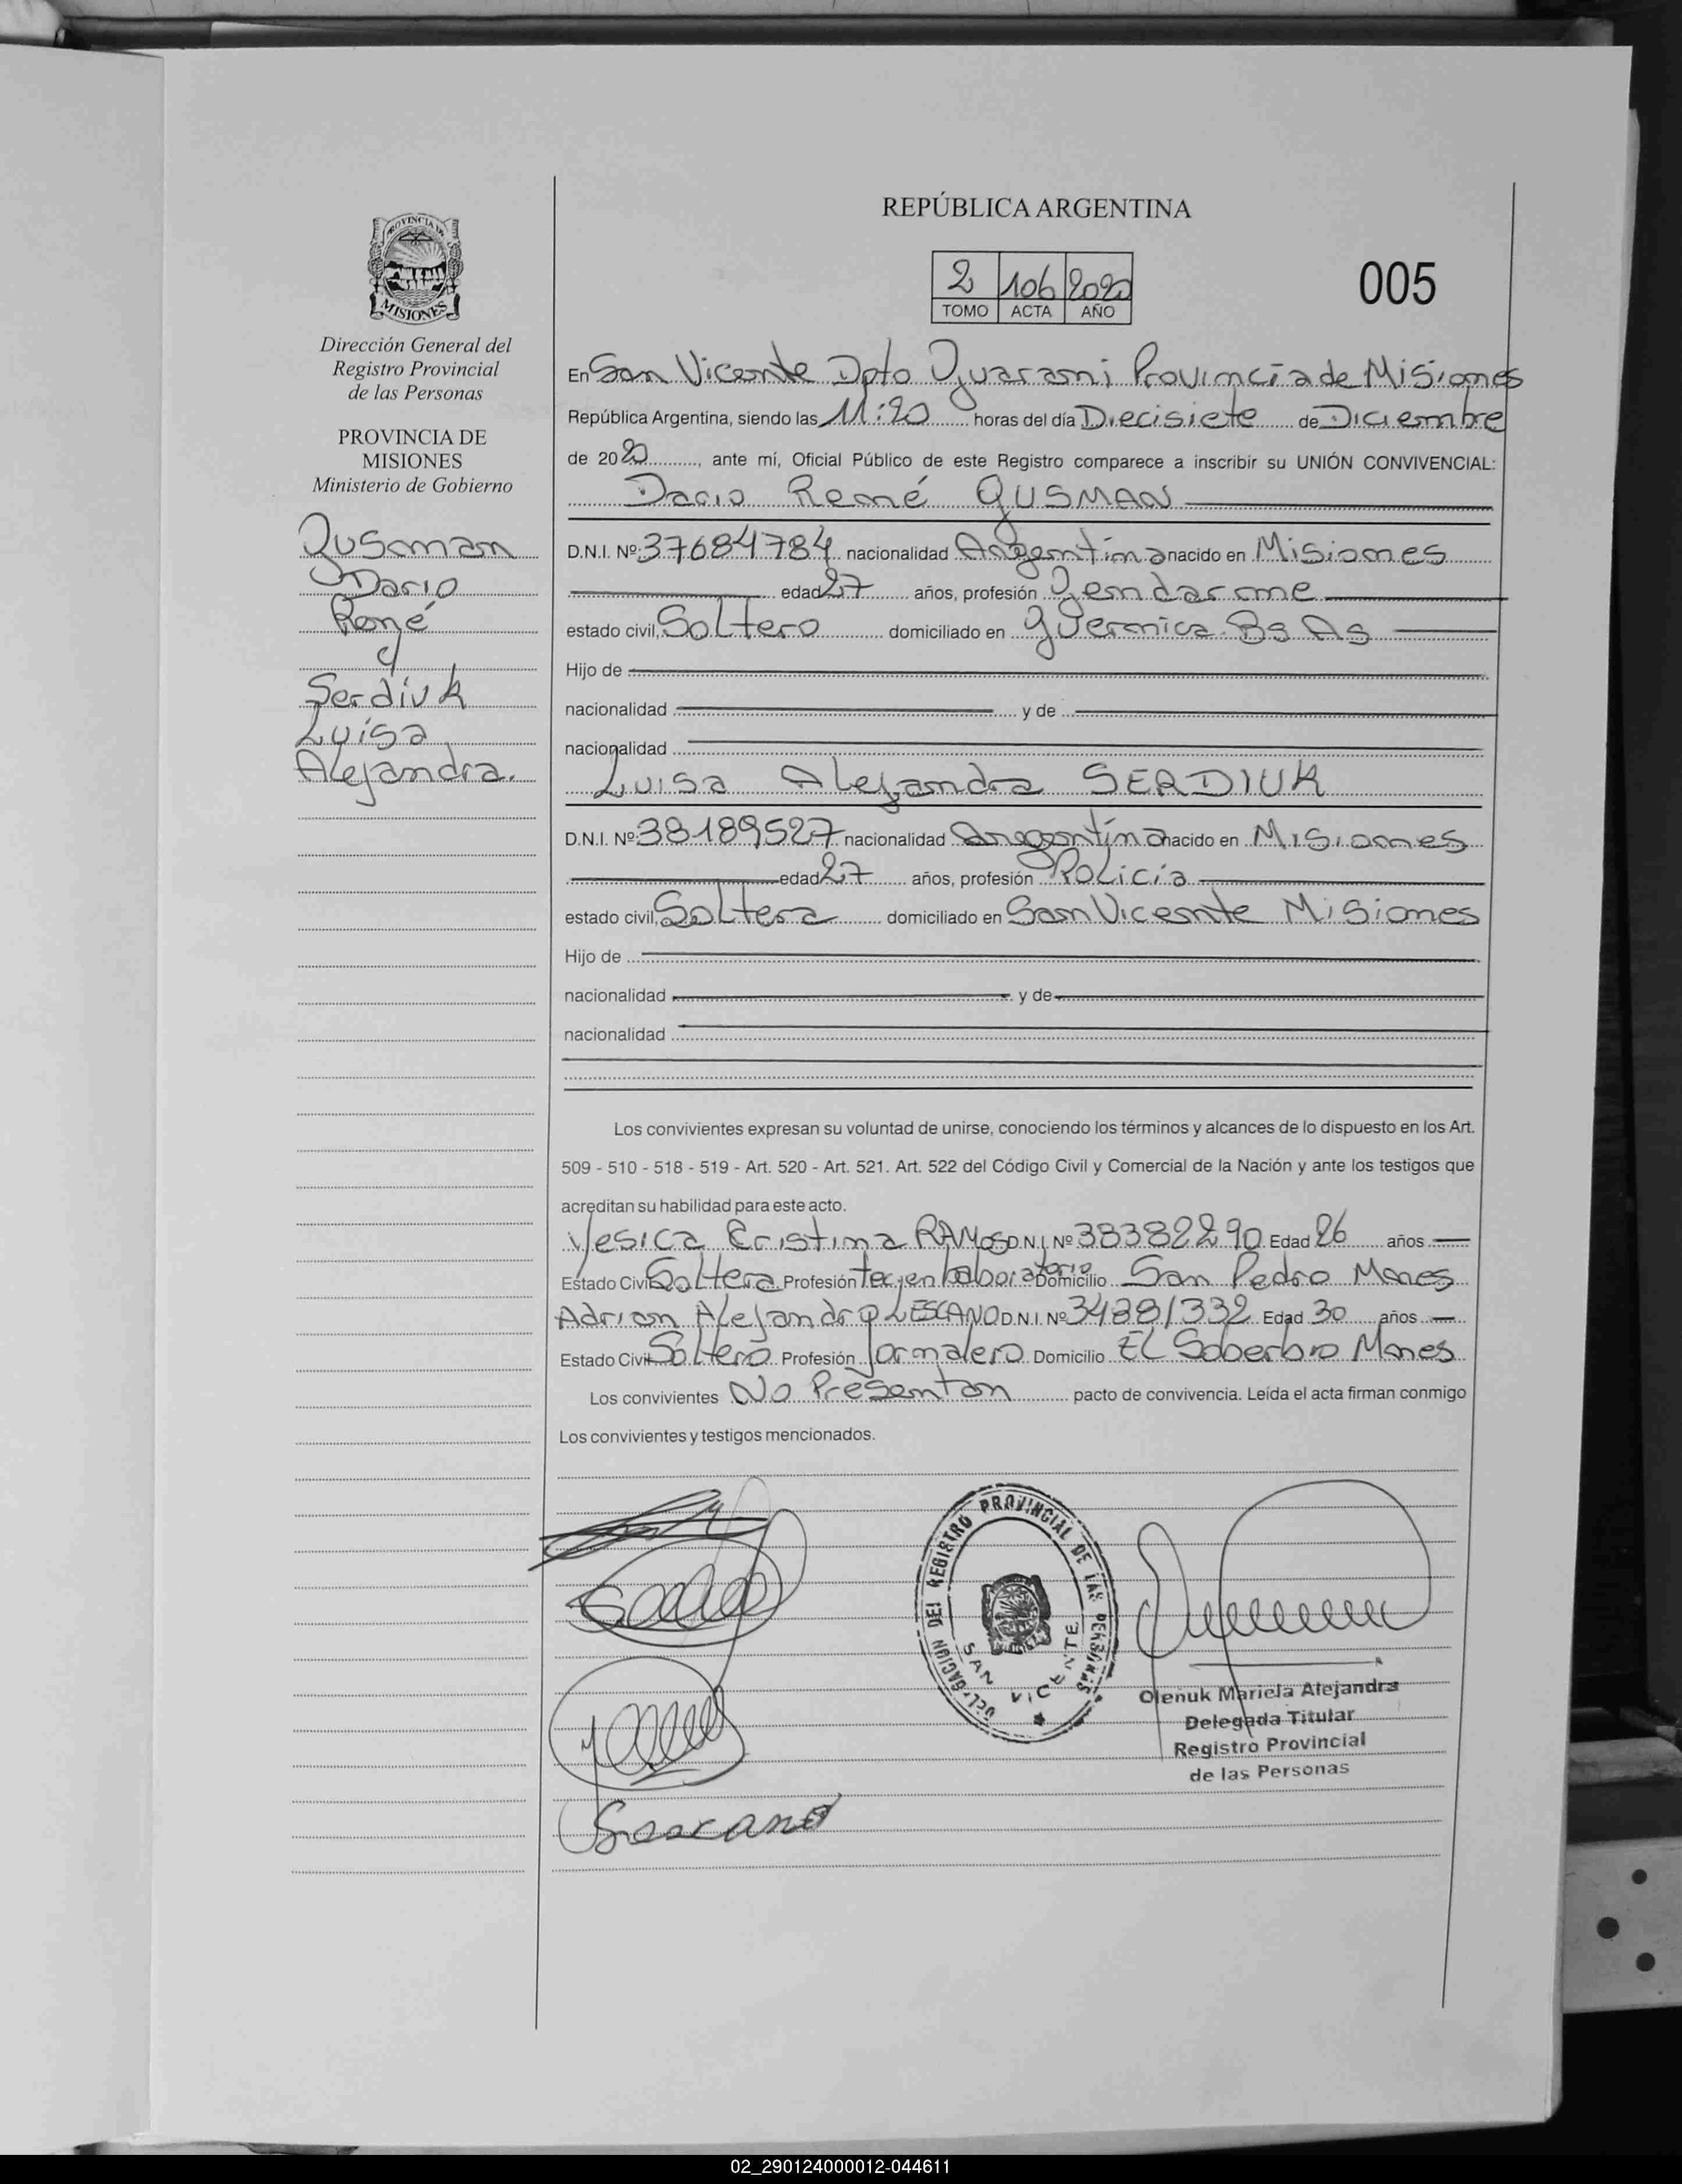 REPÚBLICA ARGENTINA
PROVINCIA DE
MISIONES
2 106 2020
TOMO ACTA AÑO
005
Dirección General del
Registro Provincial
de las Personas
PROVINCIA DE
MISIONES
Ministerio de Gobierno
Gusman
Dario
René
y
Serdiuk
Luisa
Alejandra.
En San Vicente Dpto Guarani Provincia de Misiones
República Argentina, siendo las 11:20 horas del día Diecisiete de Diciembre
de 2020, ante mí, Oficial Público de este Registro comparece a inscribir su UNIÓN CONVIVENCIAL:
Dario René GUSMAN
D.N.I. Nº: 37684784 nacionalidad Argentina nacido en Misiones
edad 27 años, profesión Gendarme
estado civil, Soltero domiciliado en Guernica. Bs As
Hijo de
nacionalidad y de
nacionalidad
Luisa Alejandra SERDIUK
D.N.I. Nº: 38189527 nacionalidad Argentina nacido en Misiones
edad 27 años, profesión Policía
estado civil, Soltera domiciliado en San Vicente Misiones
Hijo de
nacionalidad y de
nacionalidad
Los convivientes expresan su voluntad de unirse, conociendo los términos y alcances de lo dispuesto en los Art.
509 - 510 - 518 - 519 - Art. 520 - Art. 521. Art. 522 del Código Civil y Comercial de la Nación y ante los testigos que
acreditan su habilidad para este acto.
Yesica Cristina RAMOS D.N.I. Nº 38382290 Edad 26 años
Estado Civil Soltera Profesión Tec. en Laboratorio Domicilio San Pedro Mnes
Adrian Alejandro LESCANO D.N.I. Nº 34881332 Edad 30 años
Estado Civil Soltero Profesión Jornalero Domicilio El Soberbio Mnes
Los convivientes No Presentan pacto de convivencia. Leída el acta firman conmigo
Los convivientes y testigos mencionados.
DELEGACION DEL REGISTRO PROVINCIAL DE LAS PERSONAS
SAN VICENTE
Olenuk Mariela Alejandra
Delegada Titular
Registro Provincial
de las Personas
02_290124000012-044611